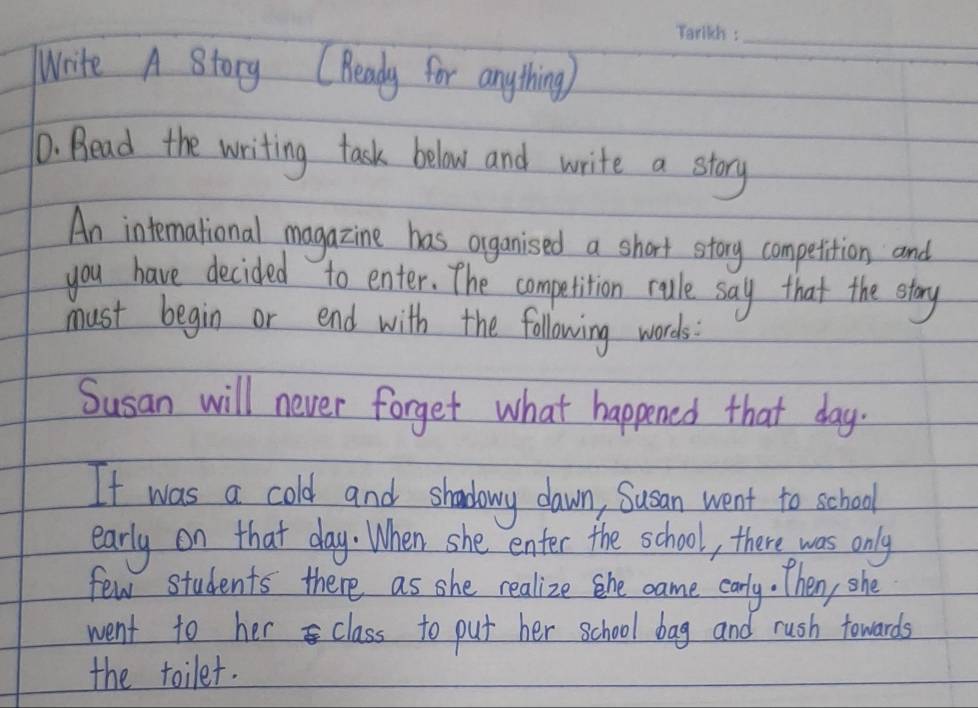 Tarikh :
Write A Story (Ready for anything)
D. Read the writing task below and write a story
An international magazine has organised a short story competition, and
you have decided to enter. The competition rule say that the story
must begin or end with the following words:
Susan will never forget what happened that day.
It was a cold and shadowy dawn, Susan went to school
early on that day. When she enter the school, there was only
few students there as she realize she came early. Then, she
went to her class to put her school bag and rush towards
the toilet.